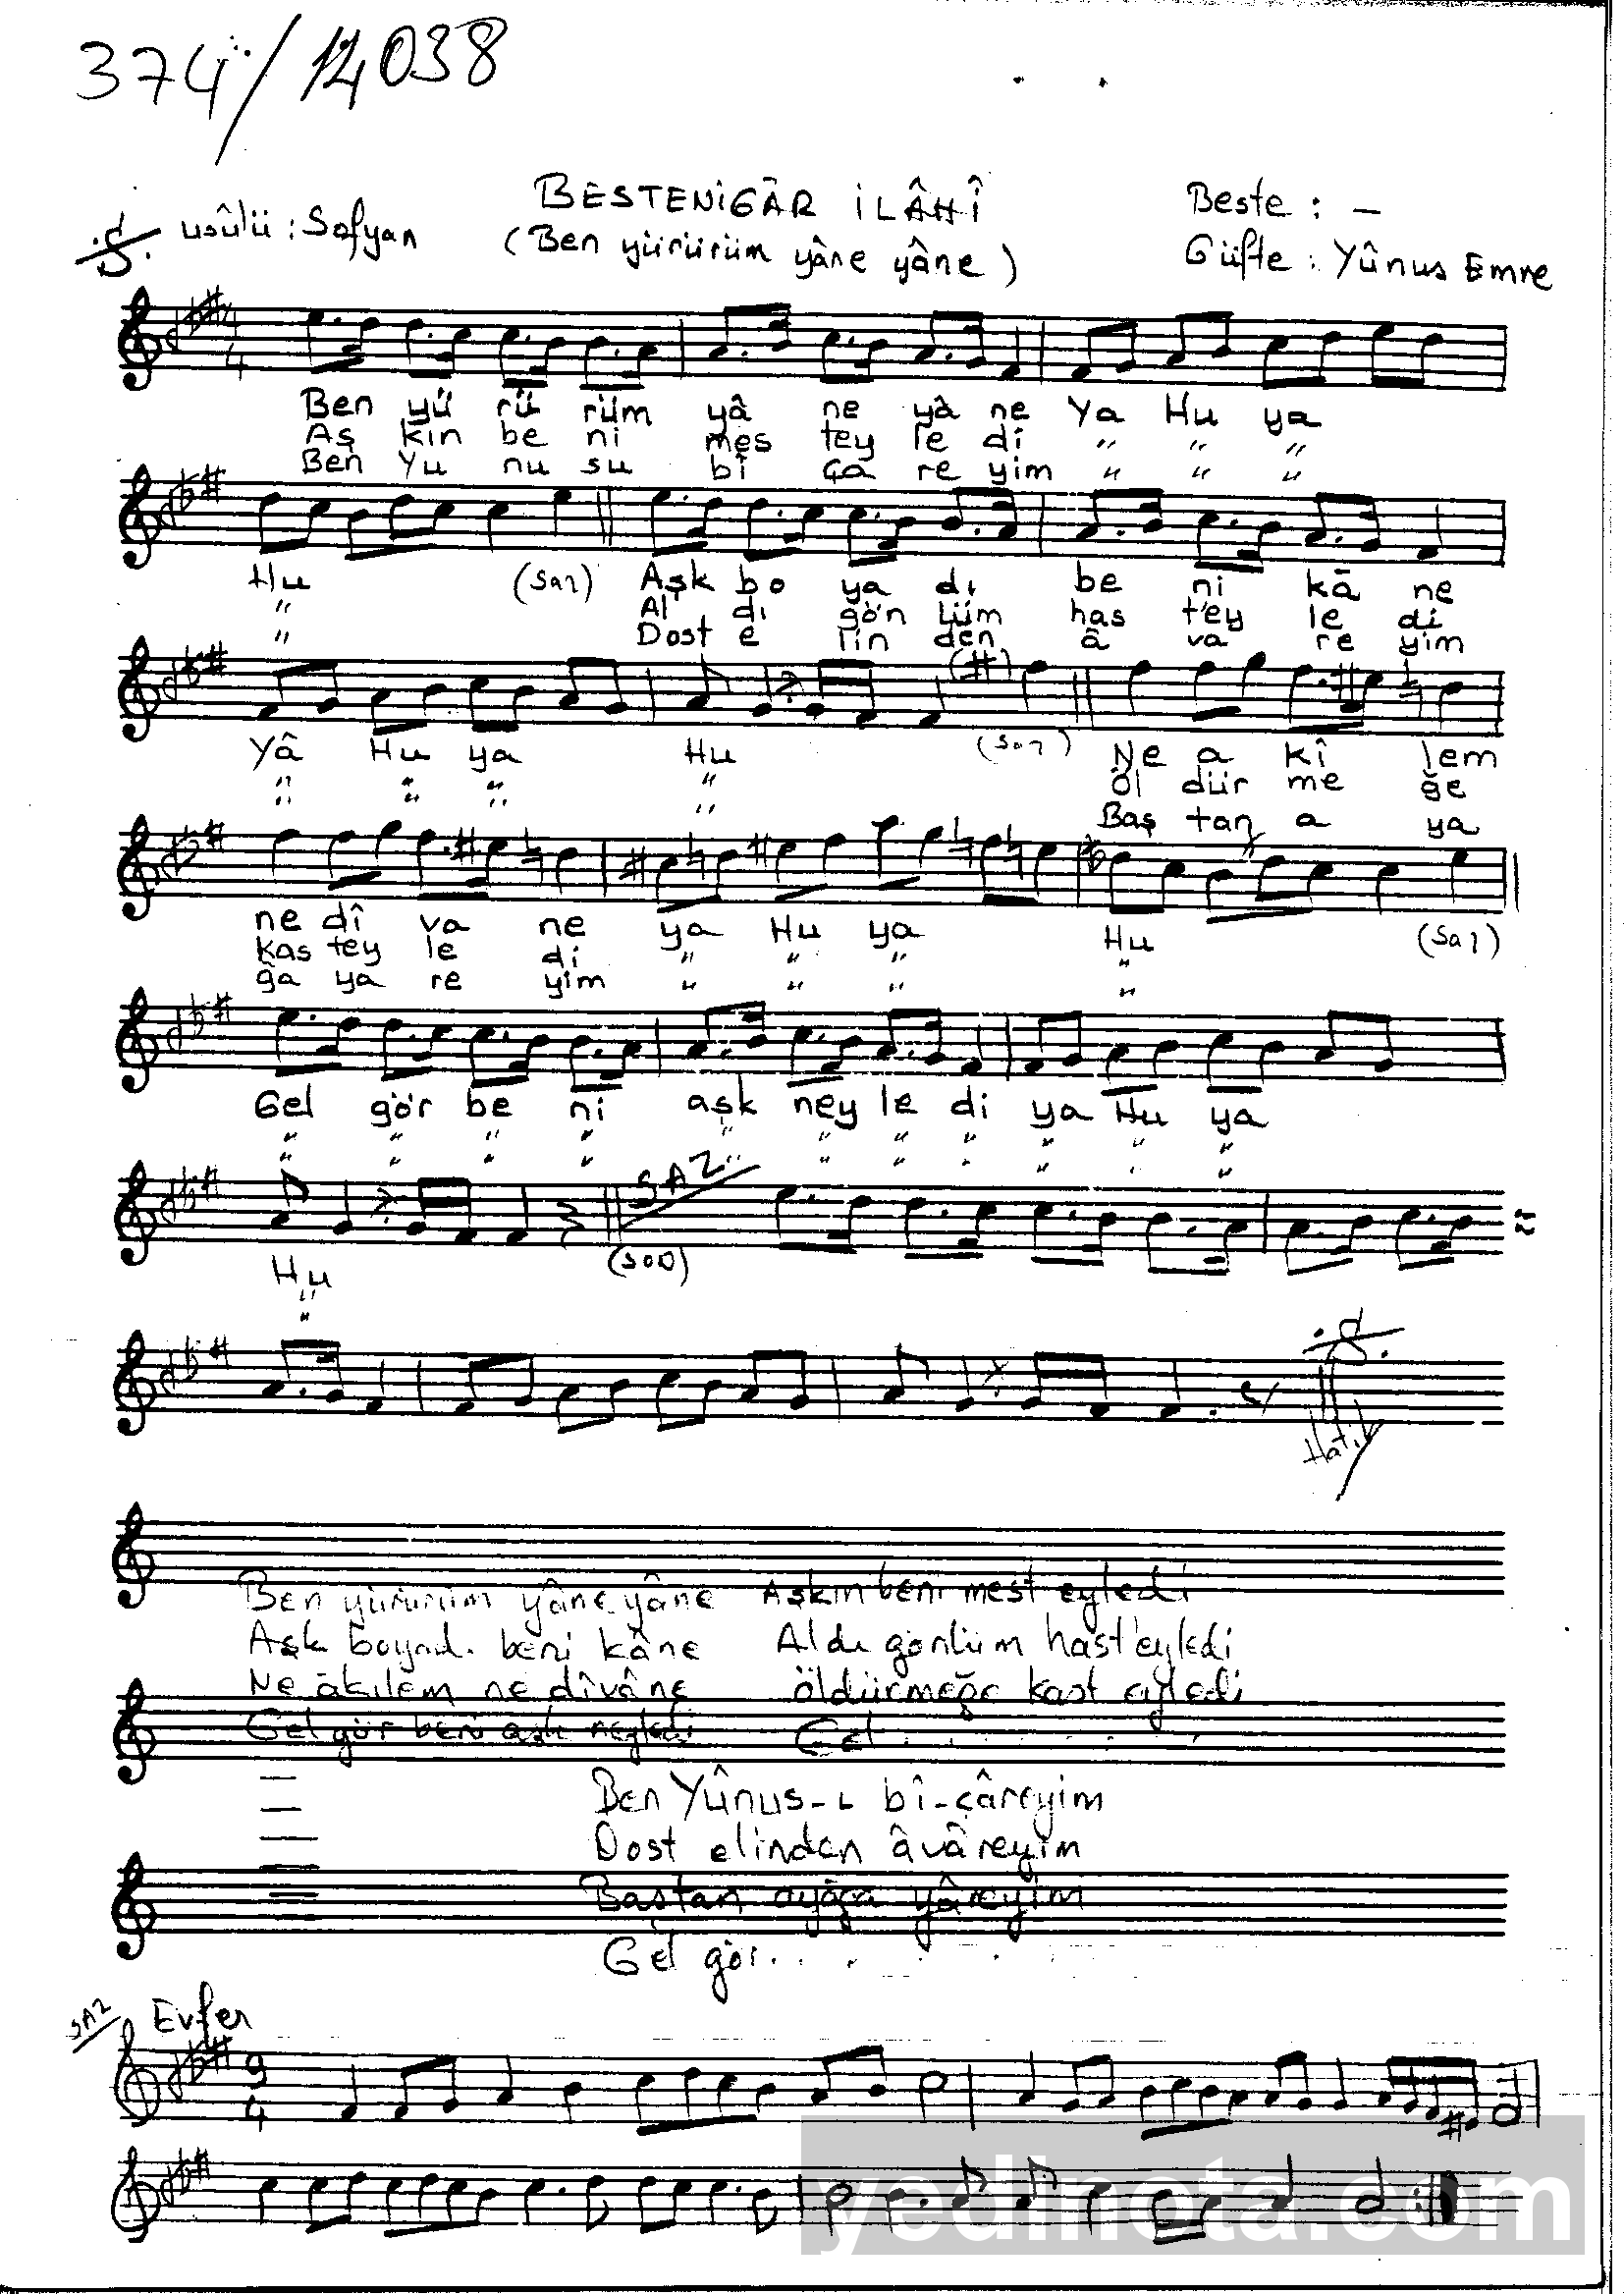 374/12038
BESTENİGÂR İLÂHÎ
Beste : –
usûlü : Sofyan
(Ben yürürüm yâne yâne)
Güfte : Yûnus Emre
4
4
Ben yü rü rüm yâ ne yâ ne Ya Hu ya
Aş kın be ni mes tey le di " " "
Ben Yu nu su bî ça re yim " " "
Hu (Saz) Aşk bo ya dı be ni kā ne
" Al dı gön lüm has t'ey le di
" Dost e lin den â va re yim
Yâ Hu ya Hu (Saz) Ne a kî lem
" " " " Öl dür me ğe
" " " " Baş tan a ya
ne dî va ne ya Hu ya Hu (Saz)
kas tey le di " " " "
ğa ya re yim " " " "
Gel gör be ni aşk ney le di ya Hu ya
" " " " " " " " " " "
" " " " " " " " " " "
SAZ
Hu (SON)
"
"
Ben yürürüm yâne yâne Aşkın beni mest eyledi
Aşk boyadı beni kâne Aldı gönlüm hast'eyledi
Ne âkılem ne dîvâne öldürmeğe kast eyledi
Gel gör beni aşk neyledi Gel . . . . .
Ben Yûnus-ı bî-çâreyim
Dost elinden âvâreyim
Baştan ayağa yâreyim
Gel gör. . . . .
SAZ Evfer
9
4
yedinota.com